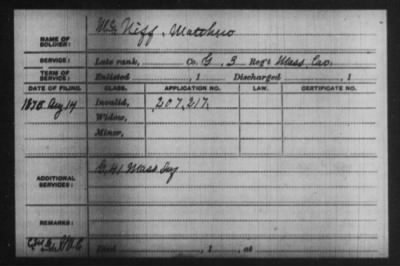 NAME OF SOLDIER: Mc Niff, Matthew
SERVICE: Late rank, Co. G, 3 Reg't Mass Cav.
TERM OF SERVICE: Enlisted , 1 Discharged , 1
DATE OF FILING. CLASS. APPLICATION NO. LAW. CERTIFICATE NO.
1875 Aug 14 Invalid, 207,217.
Widow,
Minor,
ADDITIONAL SERVICES: G, 41 Mass Inf
REMARKS:
, 1 , at